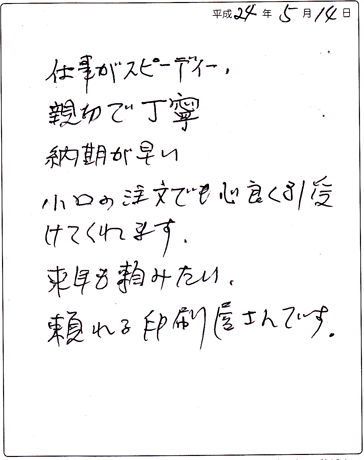 平成 24 年 5 月 14 日
仕事がスピーディー、
親切で丁寧
納期が早い
小口の注文でも心良く引受
けてくれます。
来年も頼みたい。
頼れる印刷屋さんです。